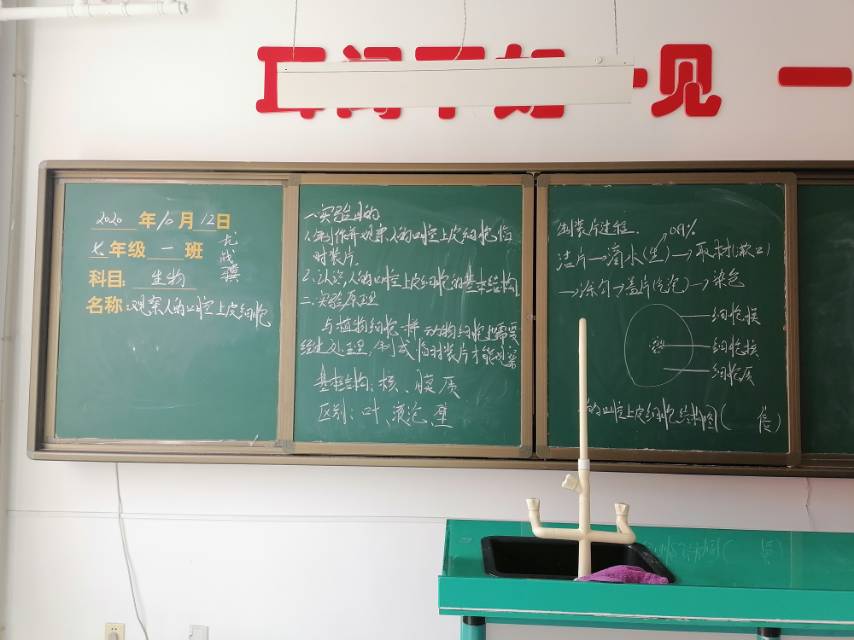 耳闻不如一见 一
2020 年 10 月 12 日
七 年级 一 班
科目: 生物
名称: 观察人的口腔上皮细胞
一.实验目的
1.制作并观察人的口腔上皮细胞临
时装片.
2.认识人的口腔上皮细胞的基本结构
二.实验原理
与植物细胞一样 动物细胞也需要
经过处理,制成临时装片才能观察
基本结构:核、膜、质
区别:叶、液泡、壁
制装片过程.
0.9%
洁片→滴水(生)→取材(漱口)
→涂匀→盖片(气泡)→染色
细胞膜
细胞核
细胞质
的口腔上皮细胞结构图( 倍)